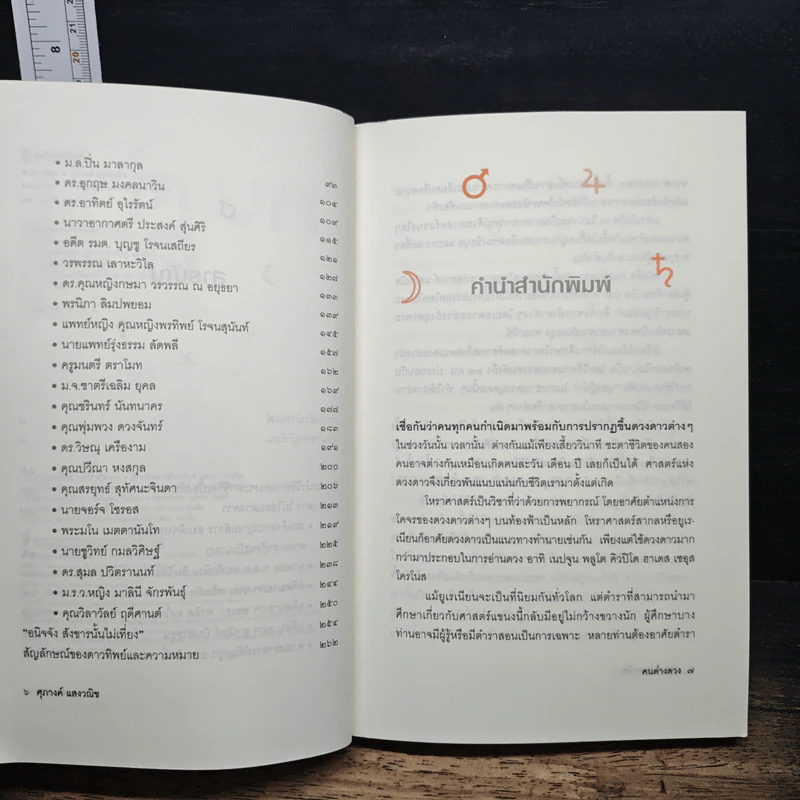 • ม.ล.ปิ่น มาลากุล
• ดร.อุกฤษ มงคลนาวิน ๙๓
• ดร.อาทิตย์ อุไรรัตน์ ๑๐๔
• นาวาอากาศตรี ประสงค์ สุ่นศิริ ๑๐๙
• อดีต รมต. บุญชู โรจนเสถียร ๑๑๕
• วรพรรณ เลาหะวิไล ๑๒๑
• ดร.คุณหญิงกษมา วรวรรณ ณ อยุธยา ๑๒๗
• พรนิภา ลิมปพยอม ๑๓๙
• แพทย์หญิง คุณหญิงพรทิพย์ โรจนสุนันท์ ๑๔๕
• นายแพทย์รุ่งธรรม ลัดพลี ๑๕๗
• ครูมนตรี ตราโมท ๑๖๒
• ม.จ.ชาตรีเฉลิม ยุคล ๑๖๙
• คุณชรินทร์ นันทนาคร ๑๗๗
• คุณพุ่มพวง ดวงจันทร์ ๑๘๓
• ดร.วิษณุ เครืองาม ๑๙๑
• คุณปวีณา หงสกุล ๒๐๐
• คุณสรยุทธ์ สุทัศนะจินดา ๒๐๖
• นายจอร์จ โซรอส ๒๑๓
• พระมโน เมตตานันโท ๒๑๙
• นายชูวิทย์ กมลวิศิษฎ์ ๒๒๕
• ดร.สุมล ปวิตรานนท์ ๒๓๘
• ม.ร.ว.หญิง มาลินี จักรพันธุ์ ๒๔๔
• คุณวิลาวัลย์ ฤดีศานต์ ๒๕๐
"อนิจจัง สังขารนั้นไม่เที่ยง" ๒๕๔
สัญลักษณ์ของดาวทิพย์และความหมาย ๒๖๒
๖ ศุภางค์ แสงวณิช
คำนำสำนักพิมพ์
เชื่อกันว่าคนทุกคนกำเนิดมาพร้อมกับการปรากฏขึ้นดวงดาวต่างๆ
ในช่วงวันนั้น เวลานั้น ต่างกันแม้เพียงเสี้ยววินาที ชะตาชีวิตของคนสอง
คนอาจต่างกันเหมือนเกิดคนละวัน เดือน ปี เลยก็เป็นได้ ศาสตร์แห่ง
ดวงดาวจึงเกี่ยวพันแนบแน่นกับชีวิตเรามาตั้งแต่เกิด
โหราศาสตร์เป็นวิชาที่ว่าด้วยการพยากรณ์ โดยอาศัยตำแหน่งการ
โคจรของดวงดาวต่างๆ บนท้องฟ้าเป็นหลัก โหราศาสตร์สากลหรือยูเร-
เนียนก็อาศัยดวงดาวเป็นแนวทางทำนายเช่นกัน เพียงแต่ใช้ดวงดาวมาก
กว่ามาประกอบในการอ่านดวง อาทิ เนปจูน พลูโต คิวปิโด ฮาเดส เซอุส
โครโนส
แม้ยูเรเนียนจะเป็นที่นิยมกันทั่วโลก แต่ตำราที่สามารถนำมา
ศึกษาเกี่ยวกับศาสตร์แขนงนี้กลับมีอยู่ไม่กว้างขวางนัก ผู้ศึกษาบาง
ท่านอาจมีผู้รู้หรือมีตำราสอนเป็นการเฉพาะ หลายท่านต้องอาศัยตำรา
คนค่างดวง ๗